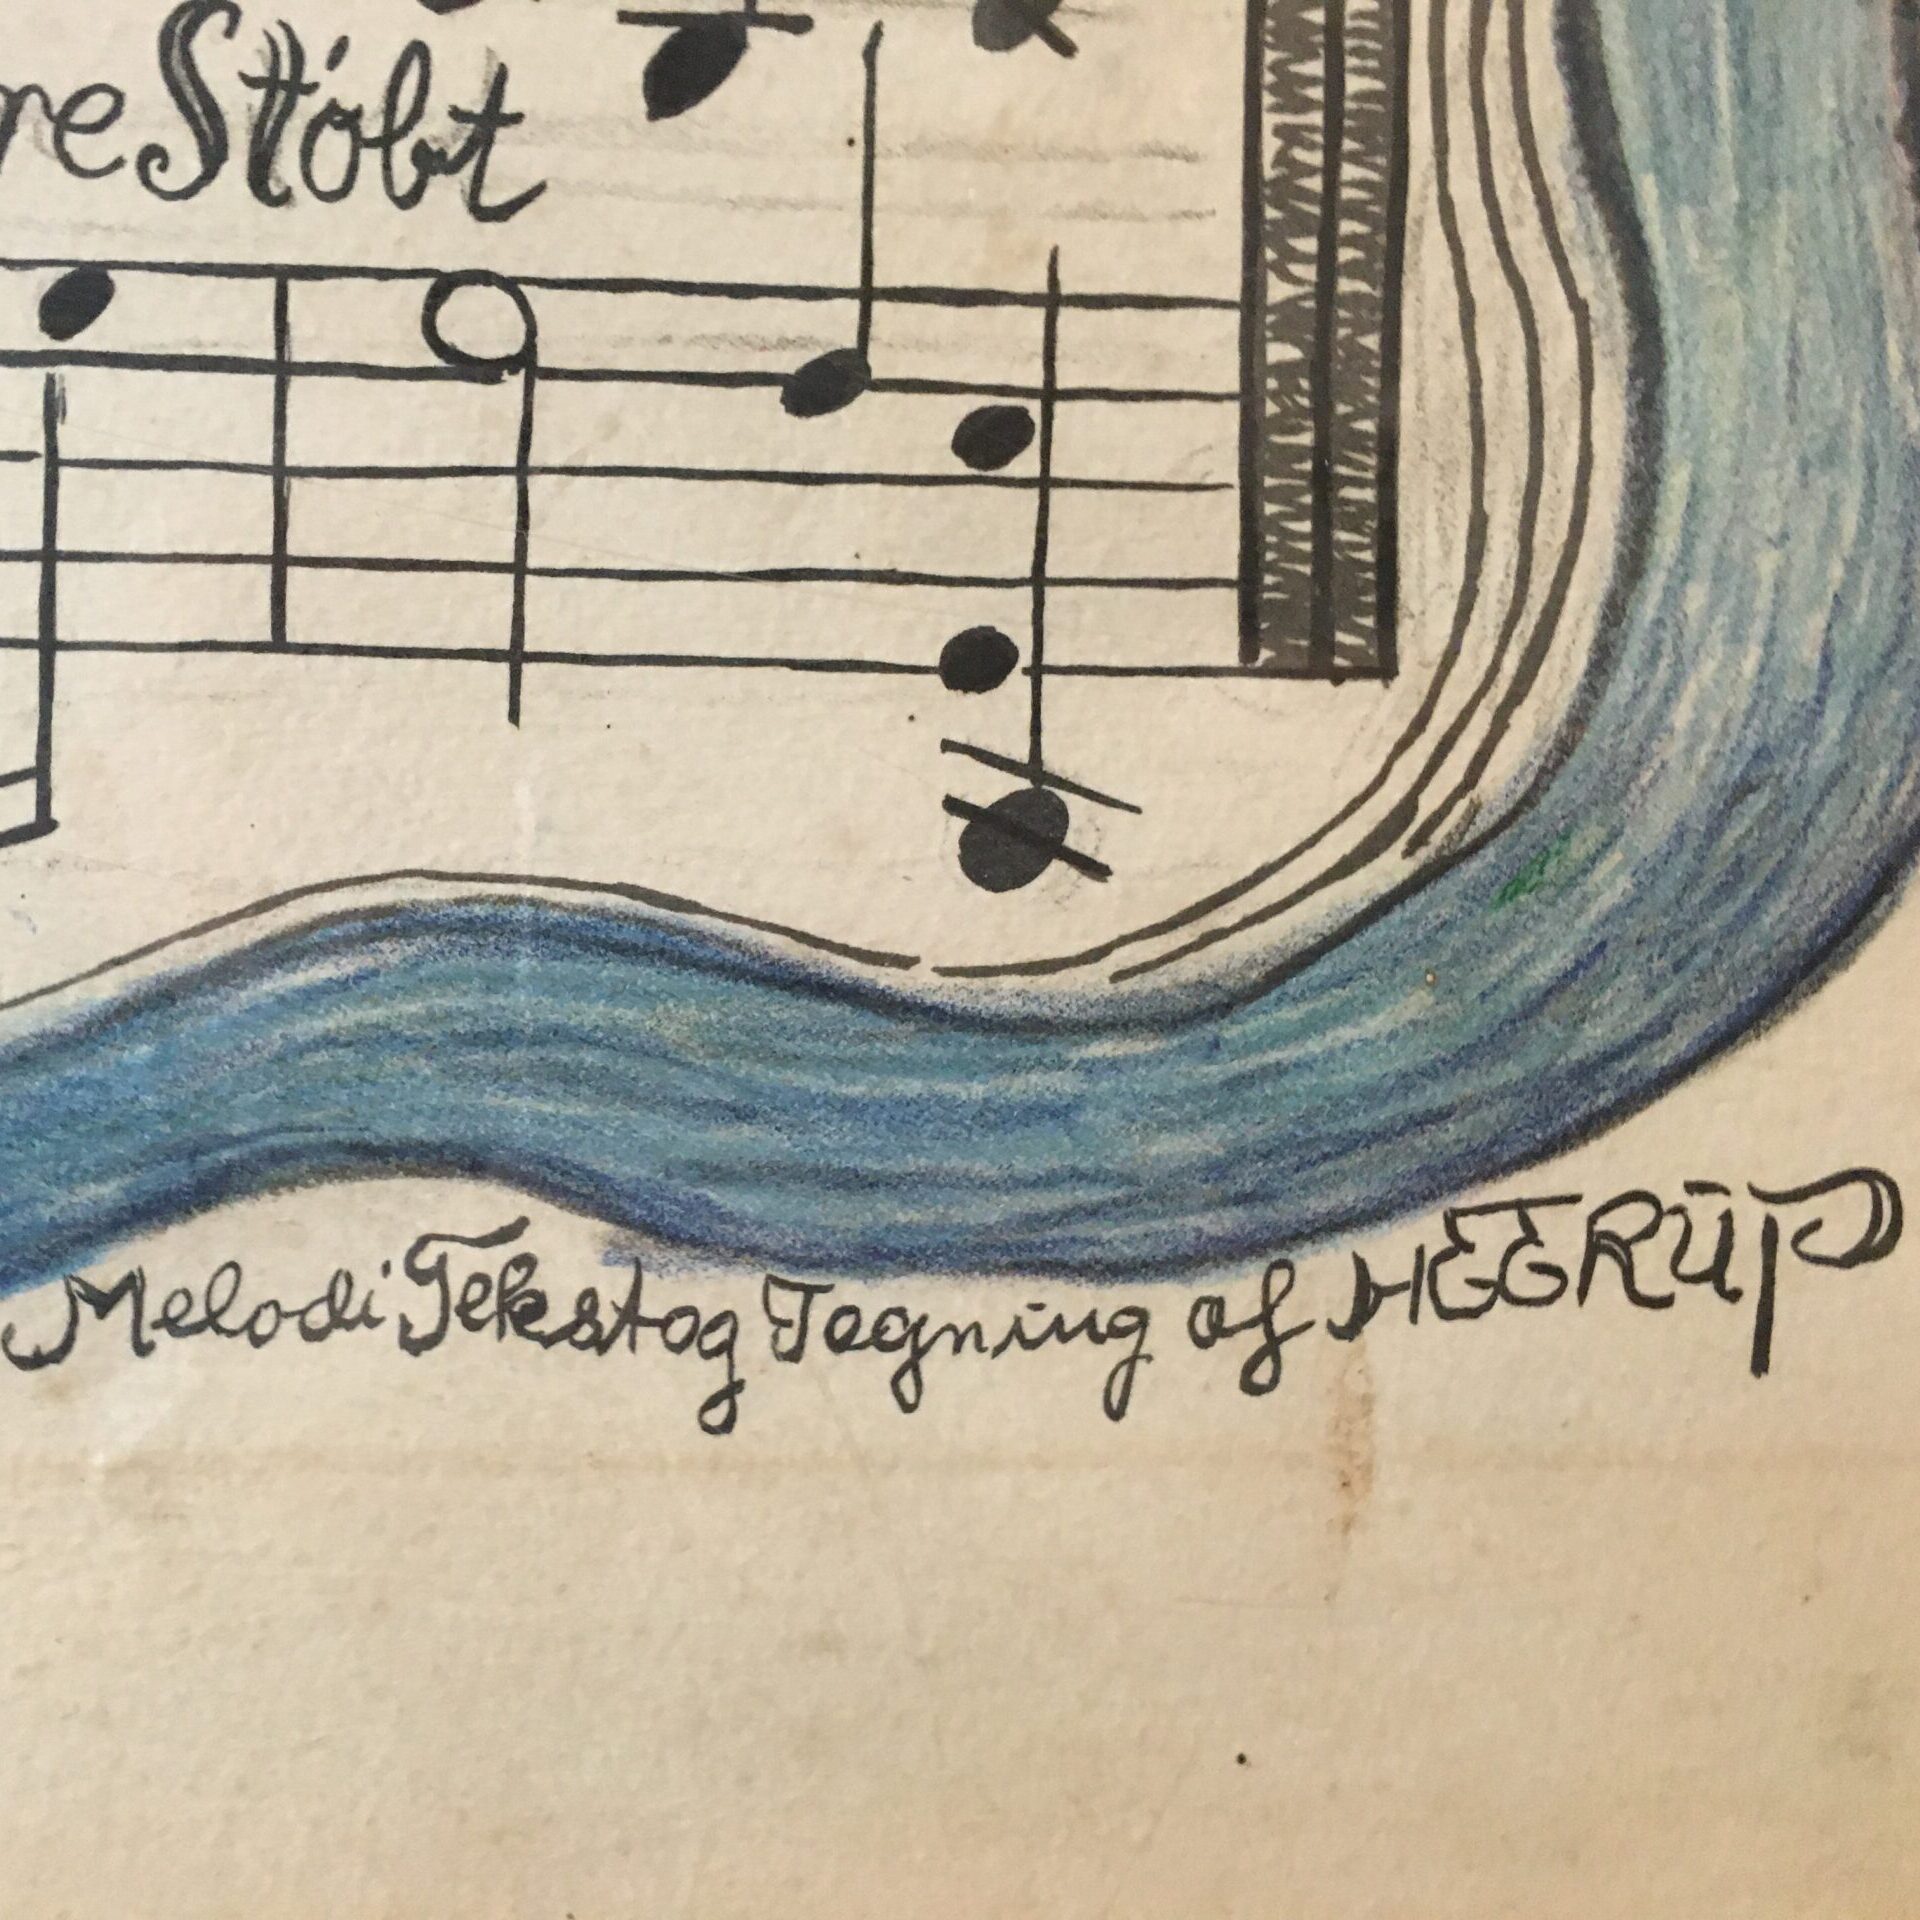 re Stöbt
Melodi Tekst og Tegning af HEERUP